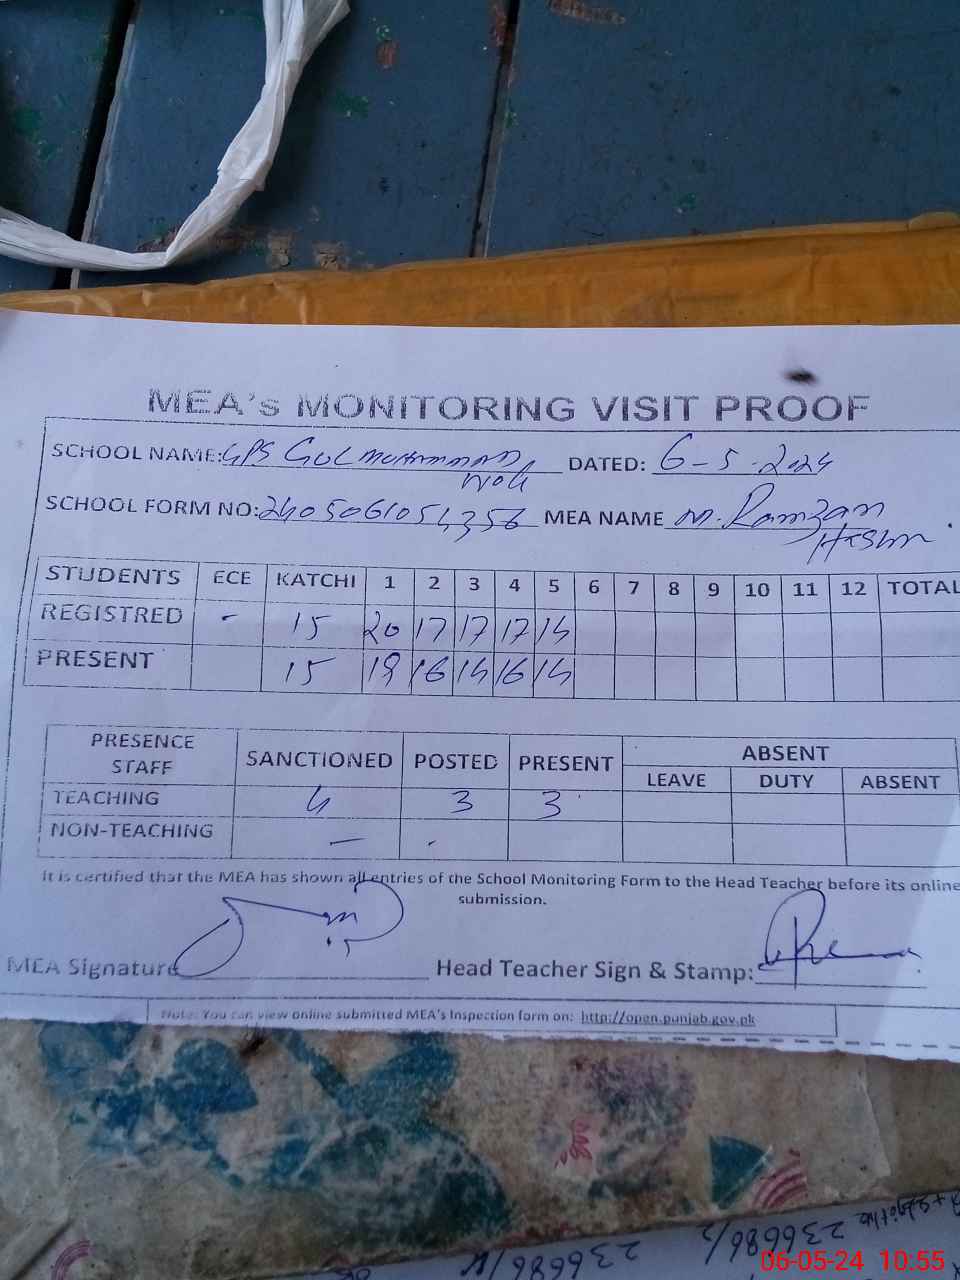 MEA's MONITORING VISIT PROOF
SCHOOL NAME: GPS GUL MUHAMMAD DATED: 6-5-2024
SCHOOL FORM NO: 2405061054356 MEA NAME M. Ramzan
STUDENTS ECE KATCHI 1 2 3 4 5 6 7 8 9 10 11 12 TOTAL
REGISTRED - 15 20 17 17 17 14
PRESENT 15 19 16 14 16 14
PRESENCE STAFF SANCTIONED POSTED PRESENT ABSENT
LEAVE DUTY ABSENT
TEACHING 4 3 3
NON-TEACHING — -
It is certified that the MEA has shown all entries of the School Monitoring Form to the Head Teacher before its online
submission.
MEA Signature Head Teacher Sign & Stamp:
Note: You can view online submitted MEA's Inspection form on: http://open.punjab.gov.pk
236686/3
236686/
06-05-24 10:55